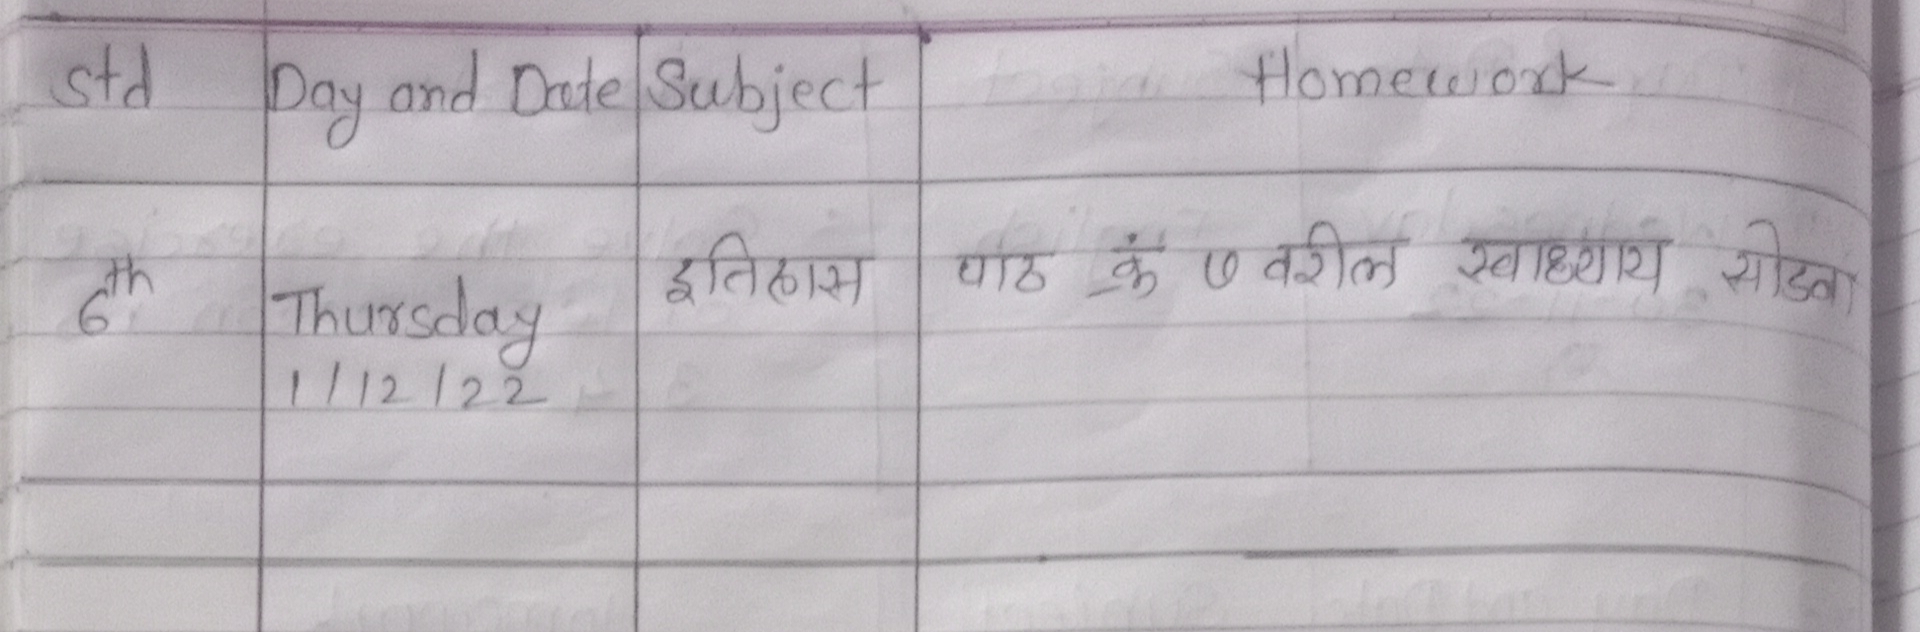 std Day and Date Subject Homework
6th Thursday इतिहास पाठ क्रं ७ वरील स्वाध्याय सोडवा
1/12/22